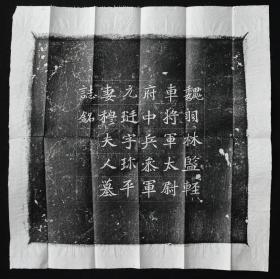 魏羽林監輕
車將軍太尉
府中兵叅軍
元珽字珎平
妻穆夫人墓
誌銘